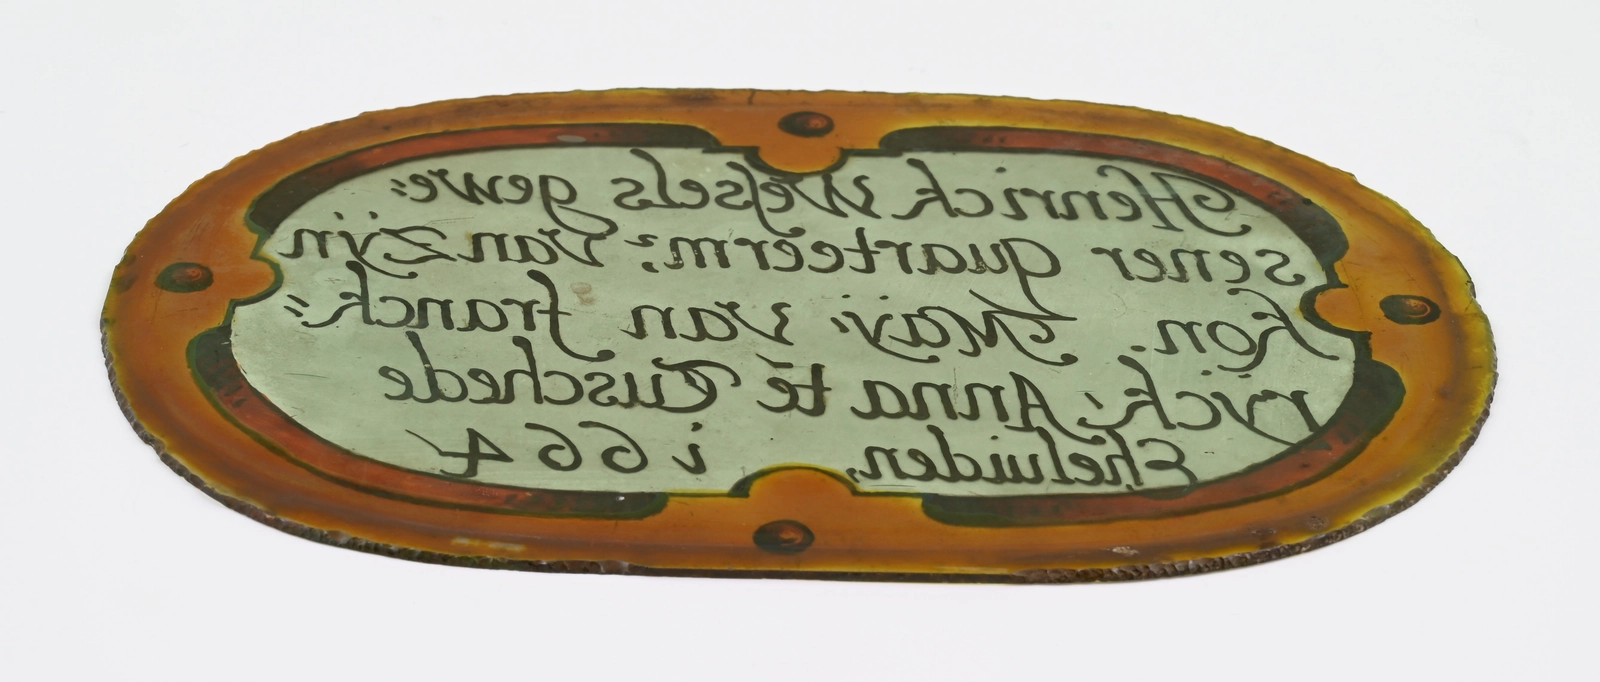 Henrick Wessels gewe:
sener quarteerm; van zÿn
Kon. Maÿ: van franck:
rÿck: Anna te Tuschede
Eheluiden, i664